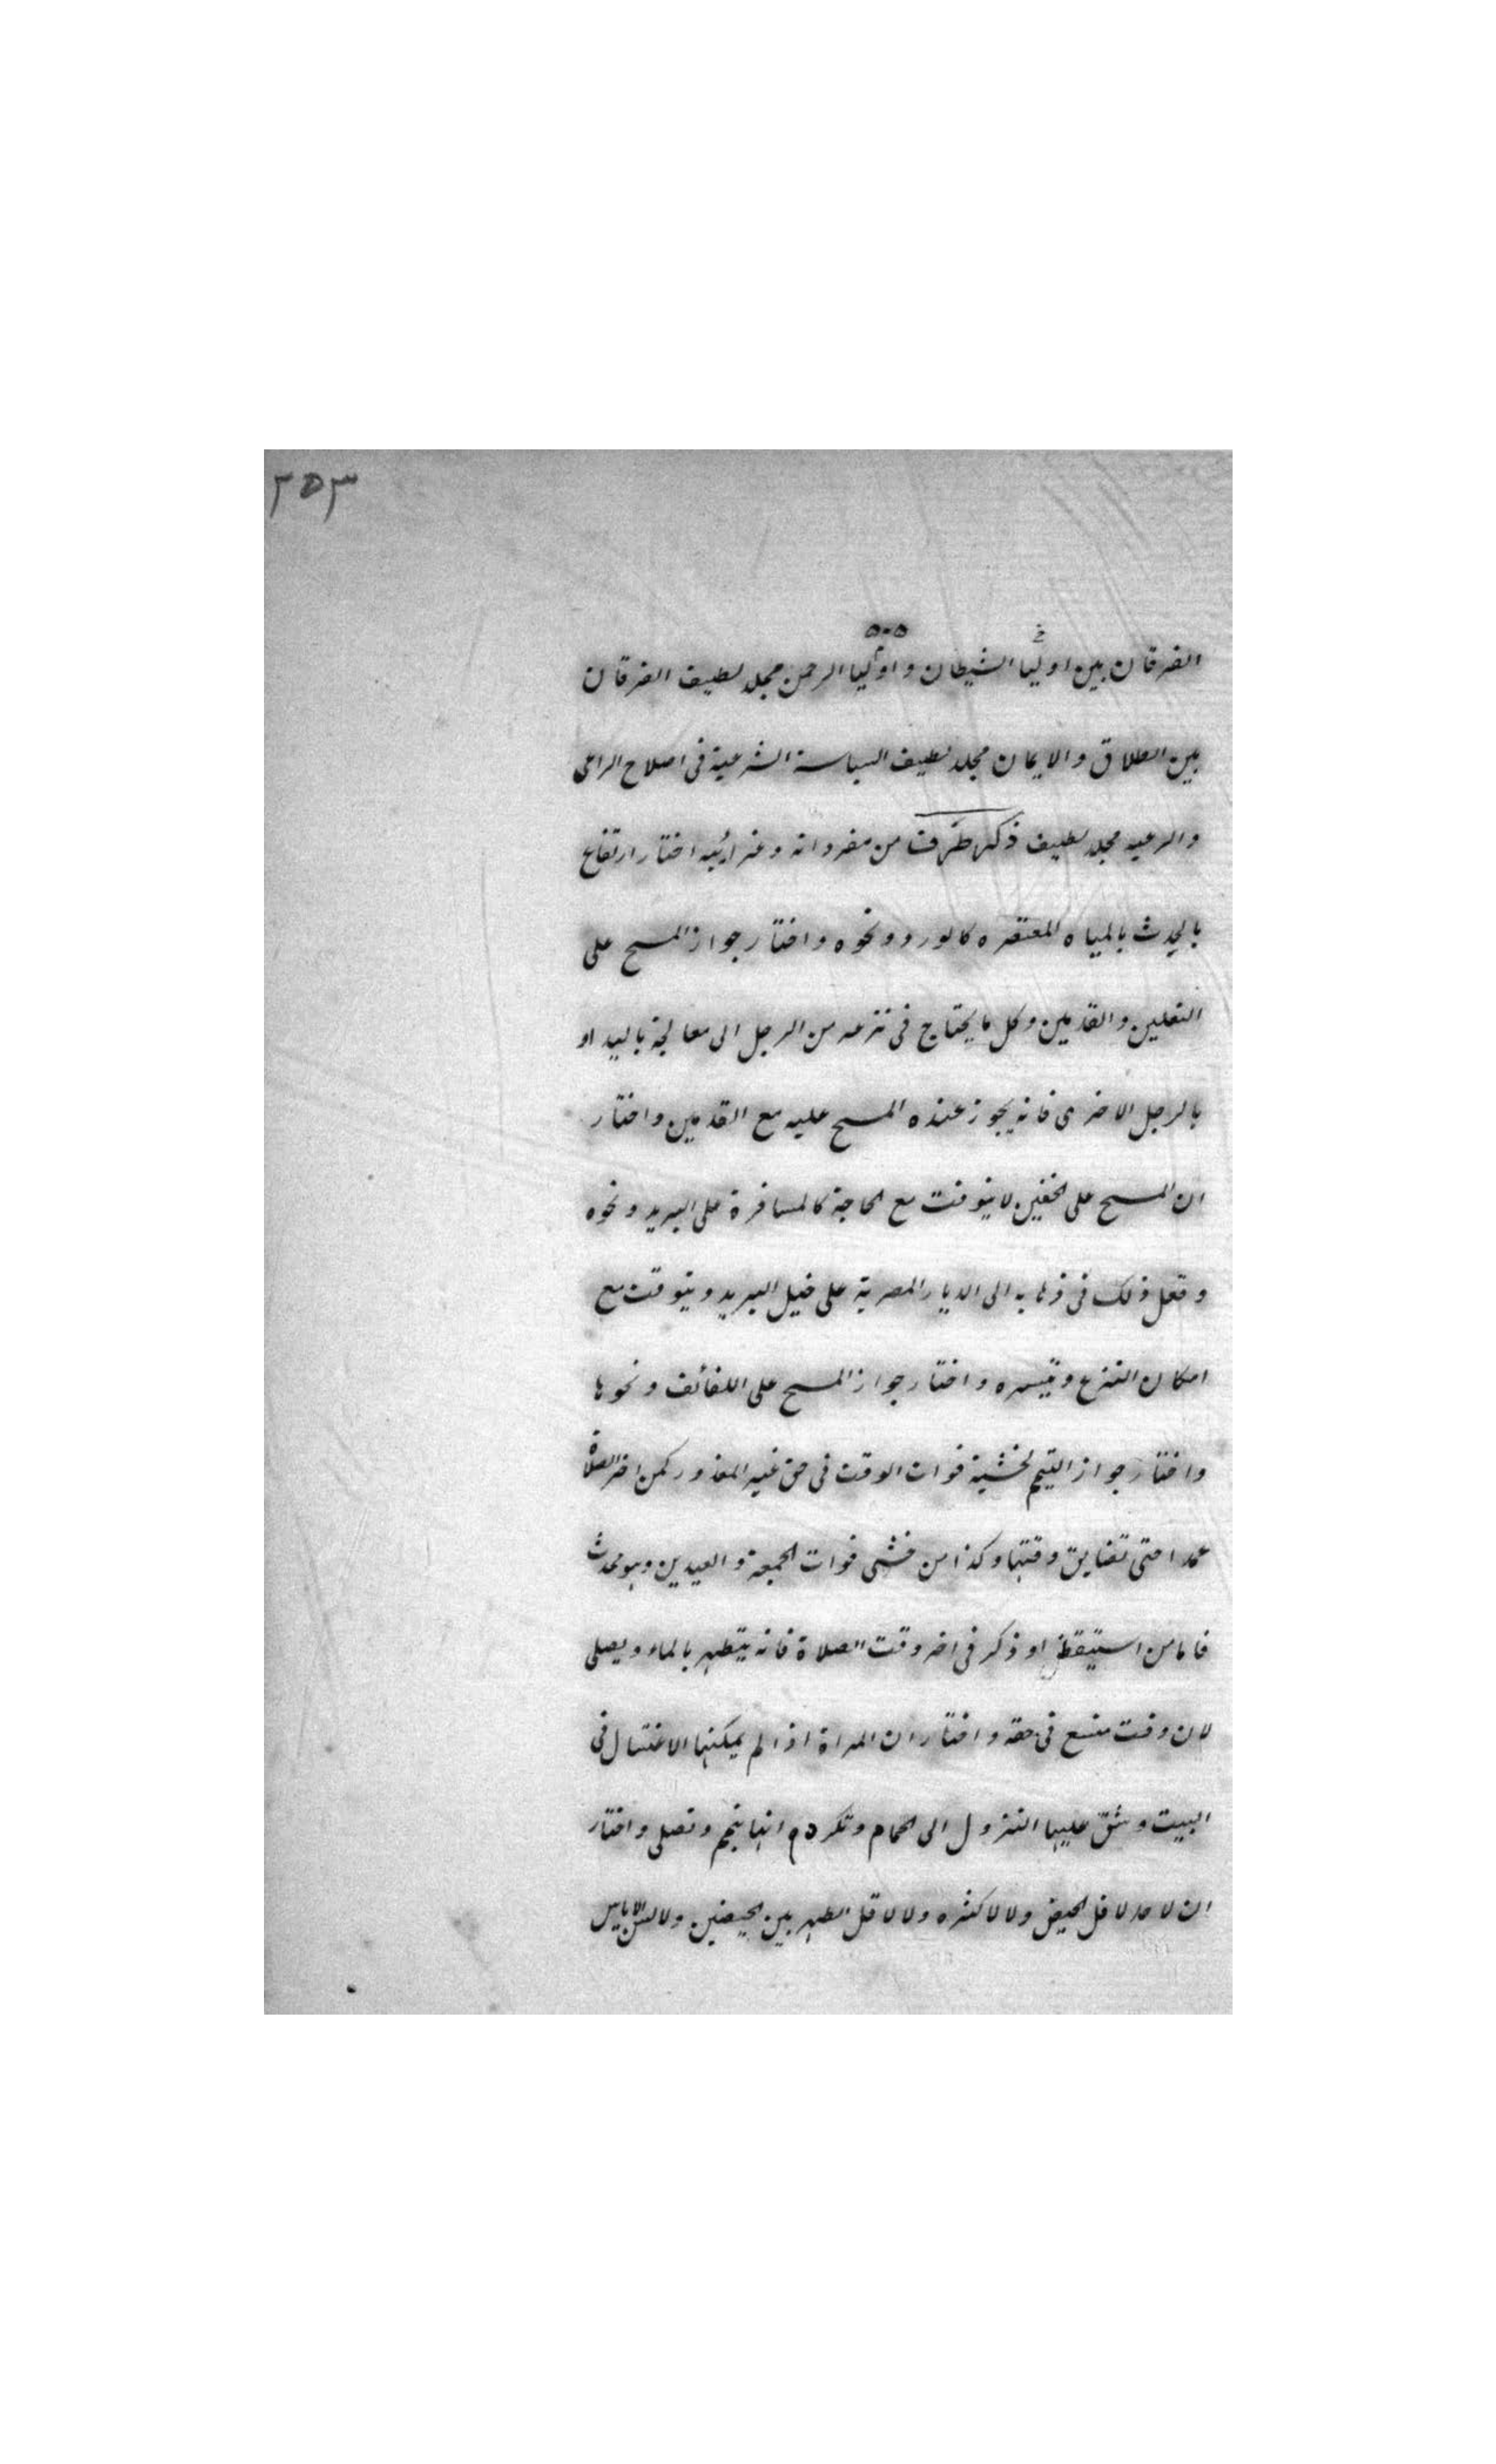 ٣٥٣
الفرقان بين اوليا الشيطان واوليا الرحمن مجلد لطيف الفرقان
بين الطلاق والايمان مجلد لطيف السياسة الشرعية فى اصلاح الراعى
والرعيه مجلد لطيف ذكر طرف من مفرداته وغرائبه اختار ارتفاع
بالحدث بالمياه المعتصره كالورد ونحوه واختار جواز المسح على
النعلين والقدمين وكل ما يحتاج فى نزعه من الرجل الى معالجة باليد او
بالرجل الاخرى فانه يجوز عنده المسح عليه مع القدمين واختار
ان المسح على الخفين لا يتوقت مع الحاجة كالمسافرة على البريد ونحوه
وفعل ذلك فى ذهابه الى الديار المصرية على خيل البريد ويتوقت مع
امكان النزع وتيسره واختار جواز المسح على اللفائف ونحوها
واختار جواز التيمم لخشية فوات الوقت فى حق غير المعذور كمن اخر الصلاة
عمدا حتى تضايق وقتها وكذا من خشى فوات الجمعة والعيدين وهو محدث
فاما من استيقظ او ذكر فى اخر وقت الصلاة فانه يتطهر بالماء ويصلى
لان وقت متسع فى حقه واختار ان المراة اذا لم يمكنها الاغتسال فى
البيت وشق عليها النزول الى الحمام وتكرره انها تيمم وتصلى واختار
ان لا حد لاقل الحيض ولا لاكثره ولا لاقل الطهر بين الحيضتين ولا لسن الاياس